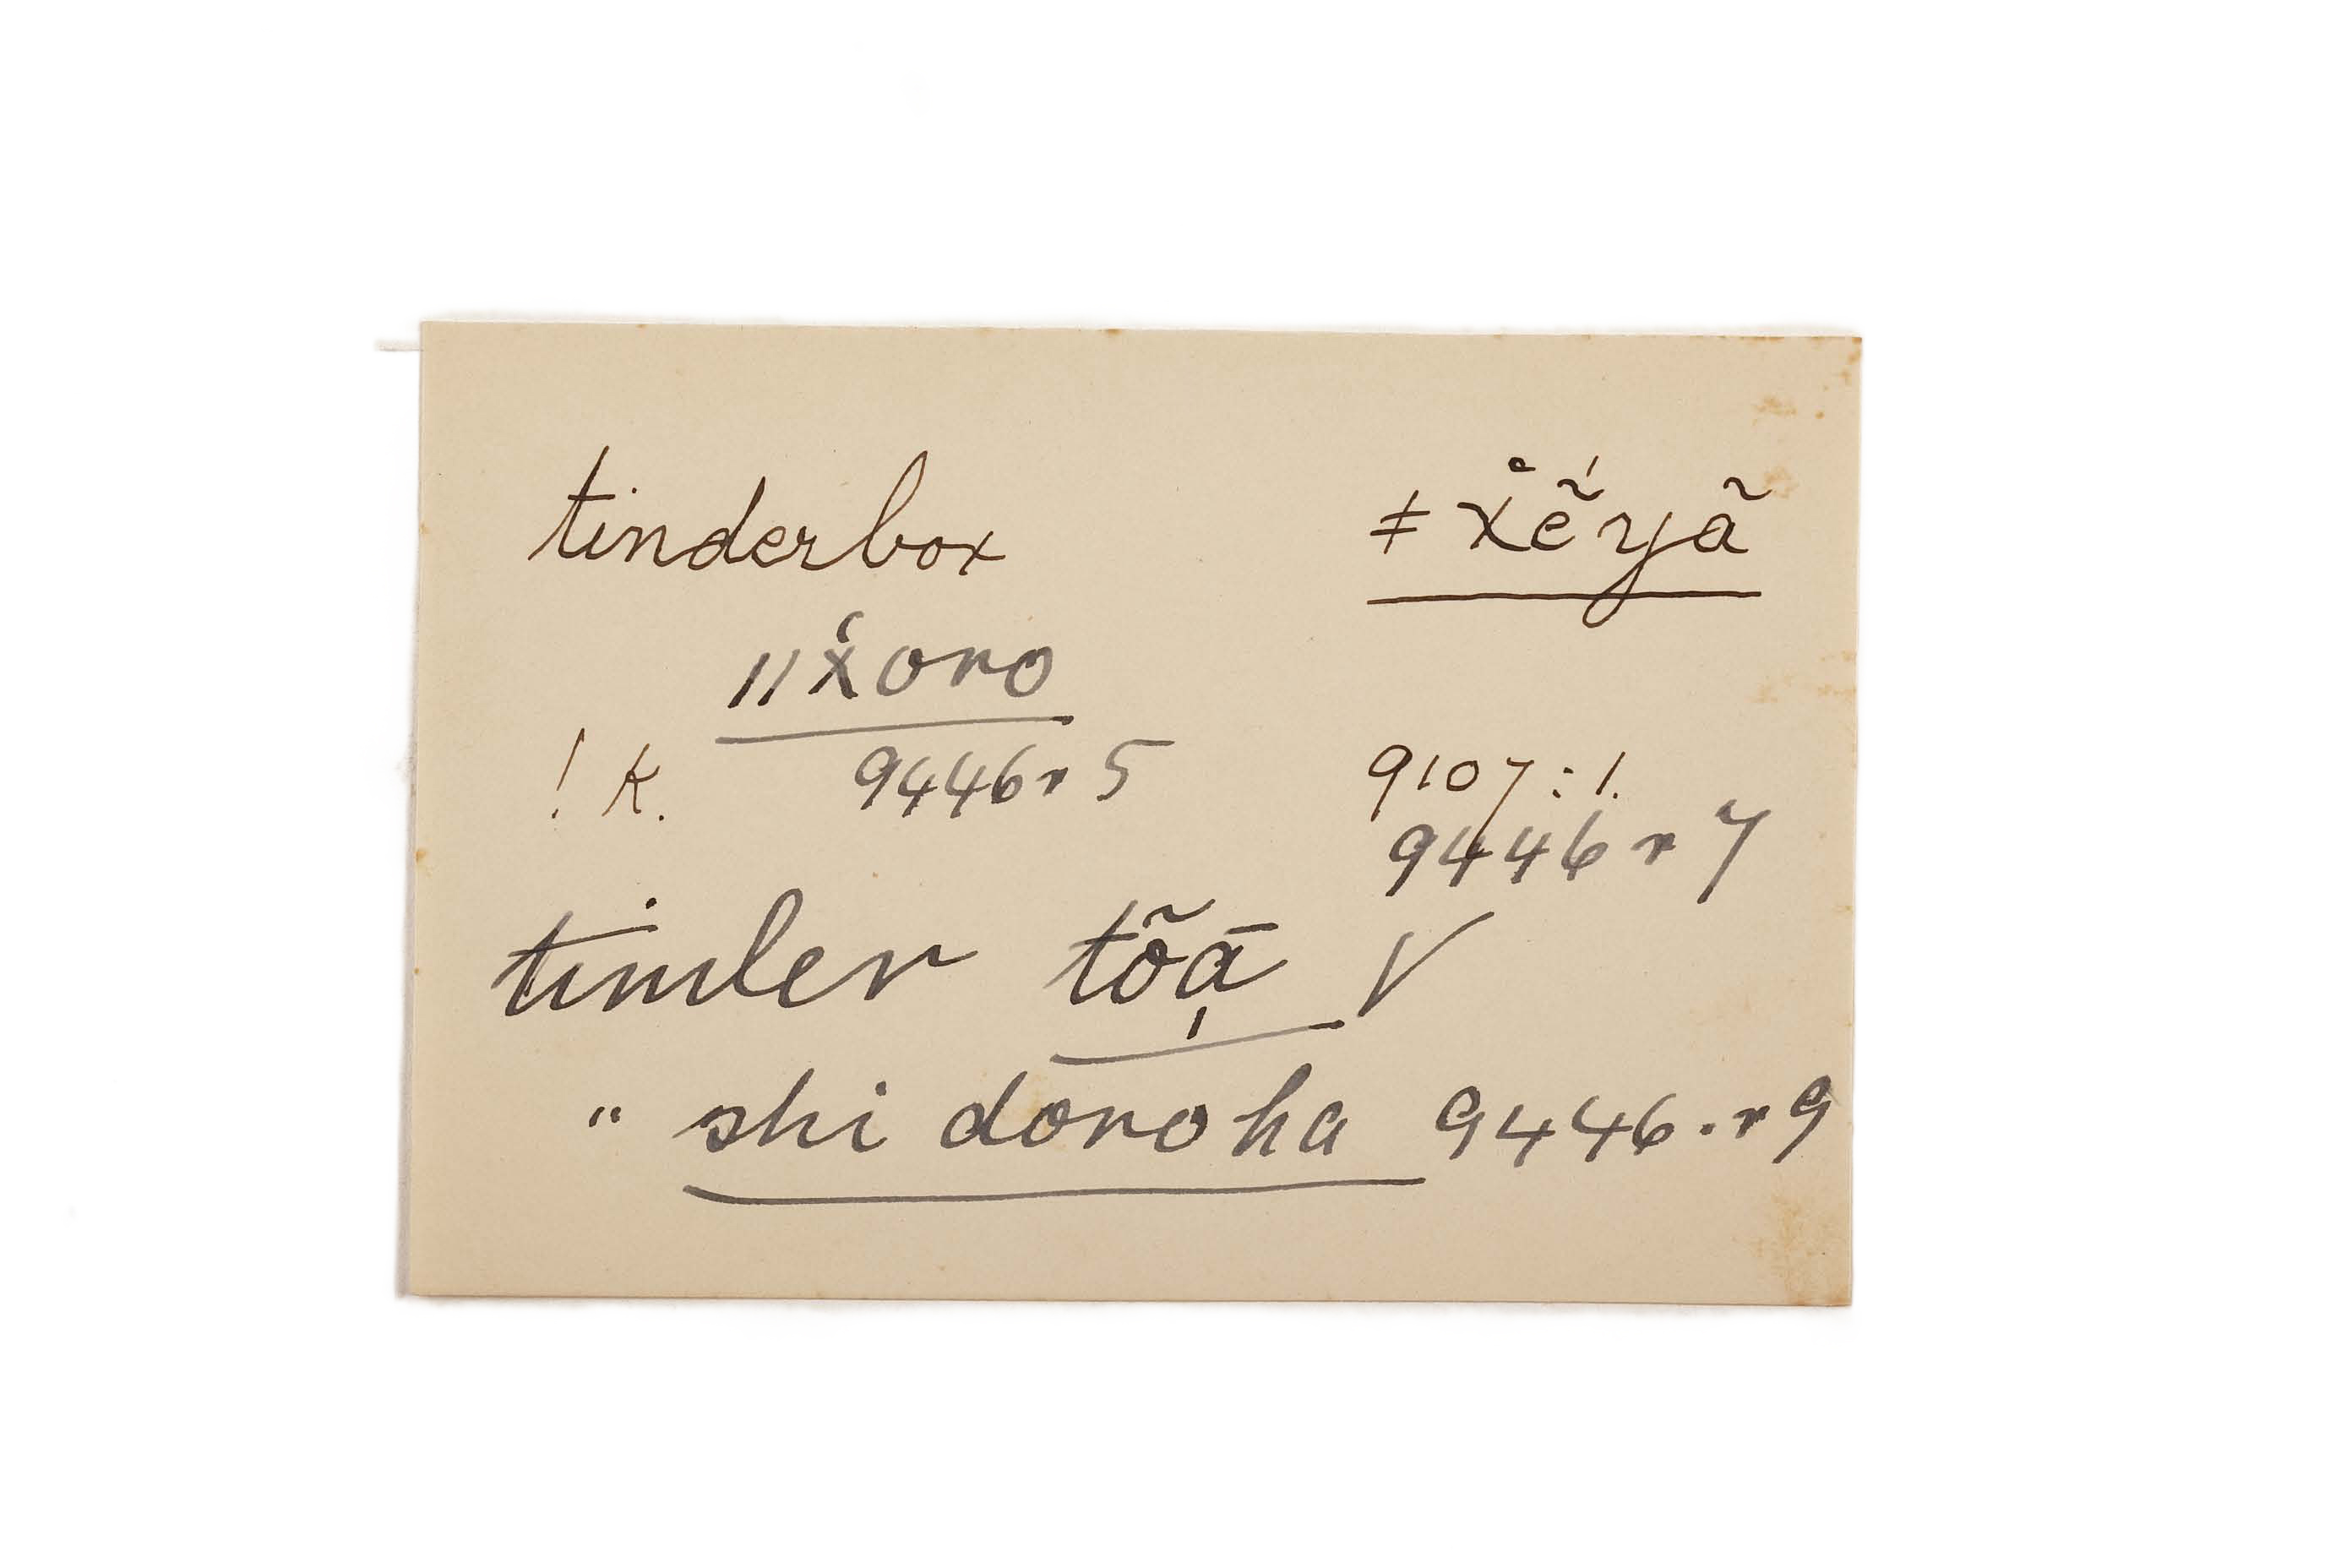 tinderbox ǂẋẽ́yã
ǁẋoro
!k. 9446r5 9107:1.
9446r7
tinder tõā̩ √
" shi doroha 9446.r9